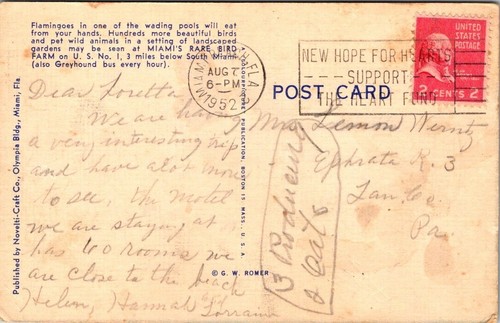 Flamingoes in one of the wading pools will eat
from your hands. Hundreds more beautiful birds
and pet wild animals in a setting of landscaped
gardens may be seen at MIAMI'S RARE BIRD
FARM on U. S. No. 1, 3 miles below South Miami
(also Greyhound bus every hour).
MIAMI, FLA.
AUG 7
6-PM
1952
NEW HOPE FOR HEARTS
SUPPORT
THE HEART FUND
UNITED
STATES
POSTAGE
2 CENTS 2
POST CARD
Dear Loretta
We are having
a very interesting trip
and have alot more
to see. The Motel
we are staying at
has 60 rooms we
are close to the beach
Helen, Hannah
Lorraine
Mrs Lemon Wentz
Ephrata R. 3
Lan. Co.
Pa.
3 Producing
2 Cats
© G. W. ROMER
Published by Novelti-Craft Co., Olympia Bldg., Miami, Fla
PUBLICATION, BOSTON 15, MASS., U. S. A.